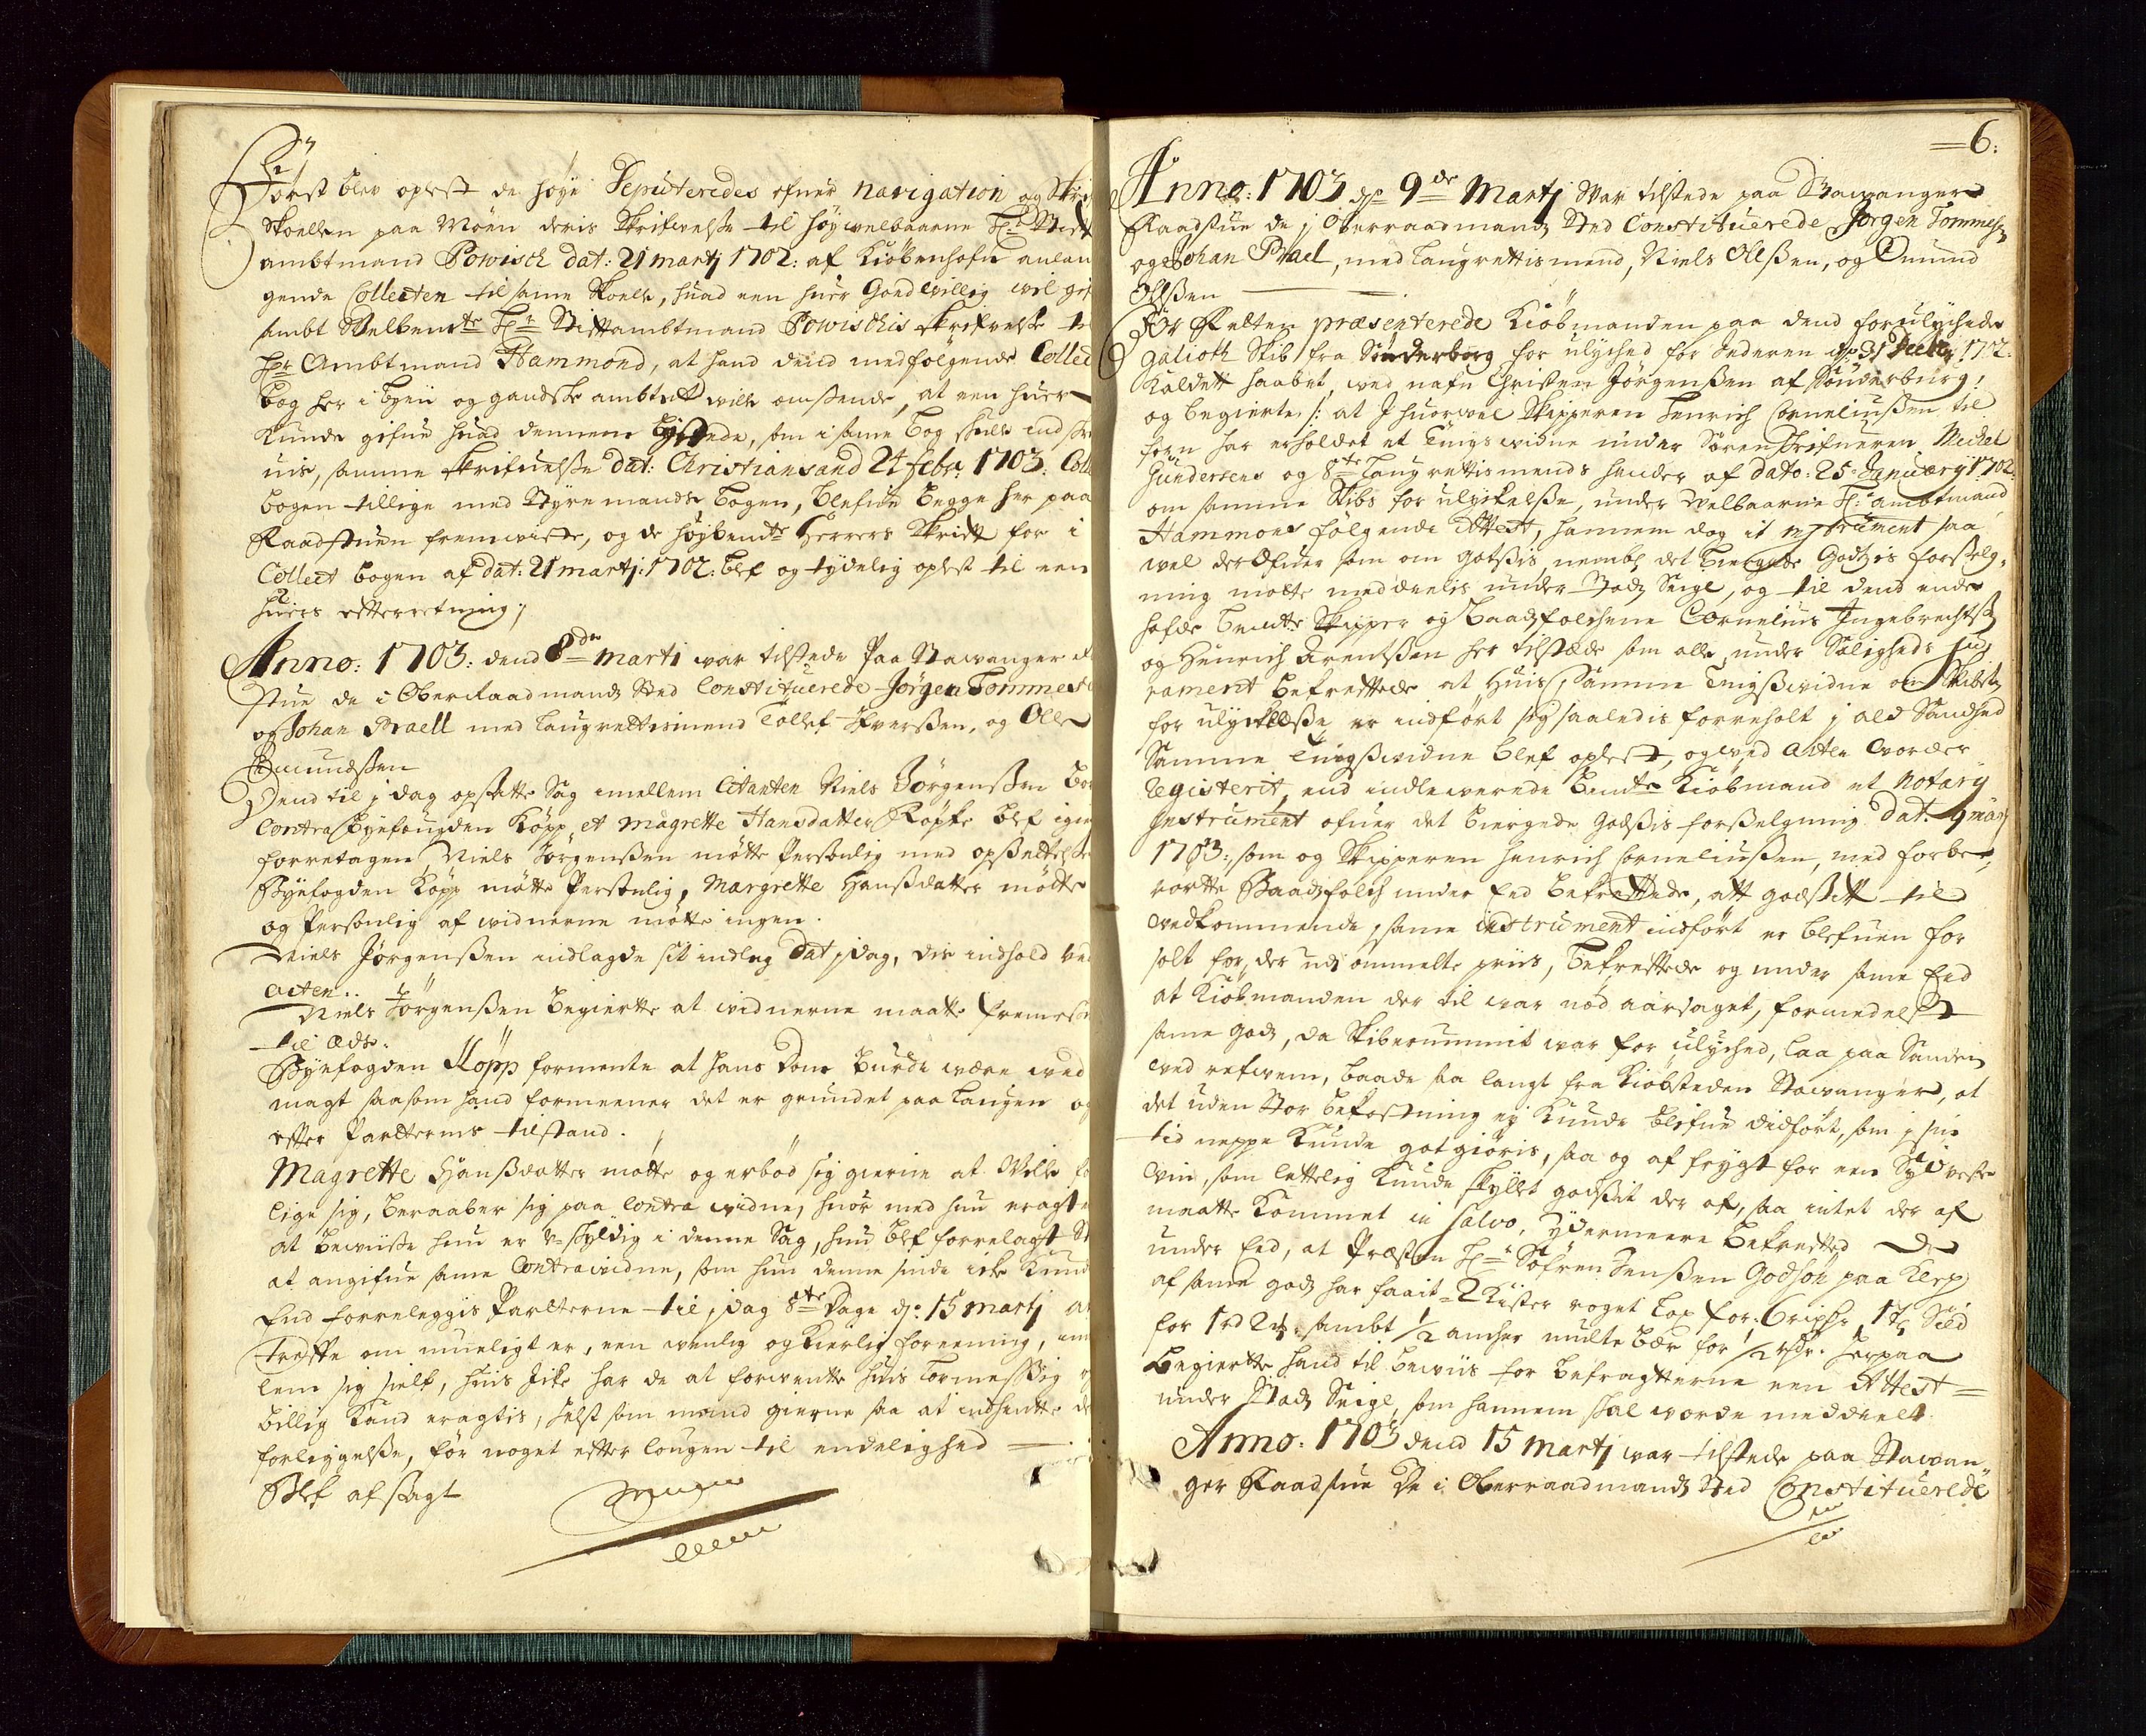 Först blev oplest de höye Deputeredes ofuer navigation og Skrif
Skoellen paa Möen deris Skrifvelse til höywelbaarne Hr Stift
ambtmand Powisch dat: 21 martj 1702: af Kiöbenhafn anlan
gende Collecten til same Skoele, huad een huer Goedwillig wil gif
sambt Welbemte Hr Stiftambtmand Powischis skrifvelse til
Hr Ambtmand Hammond, at hand dend medfölgende Collect
bog her i byen og gandske ambtet wille omsende, at een huer
Kunde gifue huad dennem lystede, som i same bog skulle indskr
uis, samme skrifuelse dat: Christiansand 24 febr: 1703. Coll
bogen tillige med Styremands bogen, blefue begge her paa
Raadstuen fremwiste, og de höybemte Herrers Skrift for i
Collect bogen af dat: 21 martj: 1702: blef og tydelig oplest til een
huers efterretning;
Anno: 1703: dend 8de marti war tilstede Paa Stawanger R
stue de i Oberraadmands Sted Constituerede Jörgen Tommes
og Johan Praell med laugrettismend Tollef Ifversen, og Olle
Omundsen
Dend til j dag opsatte Sag imellem Citanten Niels Jörgensen Bo
Contra Byefougden Köpp et Magrette Hansdatter Röpke blef igien
forretagen, Niels Jörgensen mötte Personlig med opsettelse
Byefogden Köpp mötte Personlig, Margrette Hansdatter mötte
og Personlig af widnerne mötte ingen.
Niels Jörgensen indlagde sit indleg Dat j dag, dis indhold ved
acten..
Niels Jörgensen begierte at widnerne maatte fremes
til æds.
Byefogden Köpp formente at hans Dom burde være ved
magt saasom hand formeener det er grundet paa laugen og
efter Parterne tilstand.
Magrette Hansdatter mötte og erböd sig gierne at Wille fo
lige sig, beraaber sig paa Contra widne, huor med hun eragt
at bewiise hun er uskyldig i denne Sag, hun blef forrelagt St
at angifue same Contrawidne, som hun denne sinde icke Kund
End forreleggis Parterne til j dag 8te Dage d: 15 martj at
treffe om mueligt er, een wenlig og kierlig foreening, im
lem sig sielf, huis Icke har de at forwente huis lovmessig og
billig kand eragtis, helst som mand gierne saa at indhente de
forliggelse, för noget efter lougen til endelighed
blef afsagt

=6:
Anno: 1703 d: 9de Martj War tilstede paa Stawanger
Raadstue de j Oberraadmands Sted Constituerede Jörgen Tommesen
og Johan Prael, med laugrettismend, Niels Olssen, og Omund
Olssen
For Retten præsenterede Kiöbmanden paa dend forulyckede
galioth Skib fra Sönderborg for ulycked for Jederen d: 31 Decbr 1702:
Kaldet haabet, wed nafn Christen Jörgensen af Sönderburg,
og begierte /: at J huorwel Skipperen Henrich Corneliussen til
forn har erholdet et Tings widne under Sörenskrifueren Michel
Gundersens og 8te laugrettismends hender af dato: 25 January 1702
om samme Skibs for ulyckelse, under Welbaarne Hr ambtmand
Hammons fölgende Attest, hannem dog it instrument saa
vel derofuer som om godsis, nembl det biergede Godtzis forselg,
ning motte meddeelis under Stads Seigl, og til dend ende
hafde bemte Skipper og Baadsfolchene Cornelius Ingebrechts
og Henrich Arentsen her tilstæde som alle under Saligheds Ju
rament bekreftede at huis, samme Tingswidne om Skibets
for ulyckelse er indfört sig saaledis forreholt j ald Sandhed
Samme Tingswidne blef oplest, og wed acten worder
registerit, end indlewerede bemte Kiöbmand et Notarij
Instrument ofuer det biergede godsis forselgning Dat. 9 martj
1703: som og Skipperen Henrich Corneliussen, med forbe,
rörte Baadsfolch under Eed bekreftede, at godset til
wedkommende, same instrument indfört er blefuen for
solt for, der udj ommelte priis, bekreftede og under same Eed
at Kiöbmanden der til war nöd aarsaget, formedelst
same gods, da Skibsrummit war for ulycked, laa paa Sanden
wed refwen, baade saa langt fra Kiöbsteden Stawanger, at
det uden Stor bekostning ey Kunde blifue didfört, som j sin
tid neppe Kunde gotgiöris, saa og af frygt for een Sydveste
Win, som lettelig Kunde skyllet godset der af, saa intet der af
maatte kommet in Salvo, Ydermeere bekrefted de
under Eed, at Præsten Hr Söfren Jensen Godson paa Klep
af same gods har faait 2 Kister roget lax for 6 rixdr, 1 td Sild
for 1 rd 2 , sambt 1/2 ancher multe bær for 1/2 rdr. herpaa
begierte hand til bewiis for befragterne een Attest
under Stads Seigl, som hannem skal worde meddeelt.
Anno: 1703 dend 15 Martj war tilstede paa Stawan
ger Raadstue De i Oberraadmands Sted Constituerede